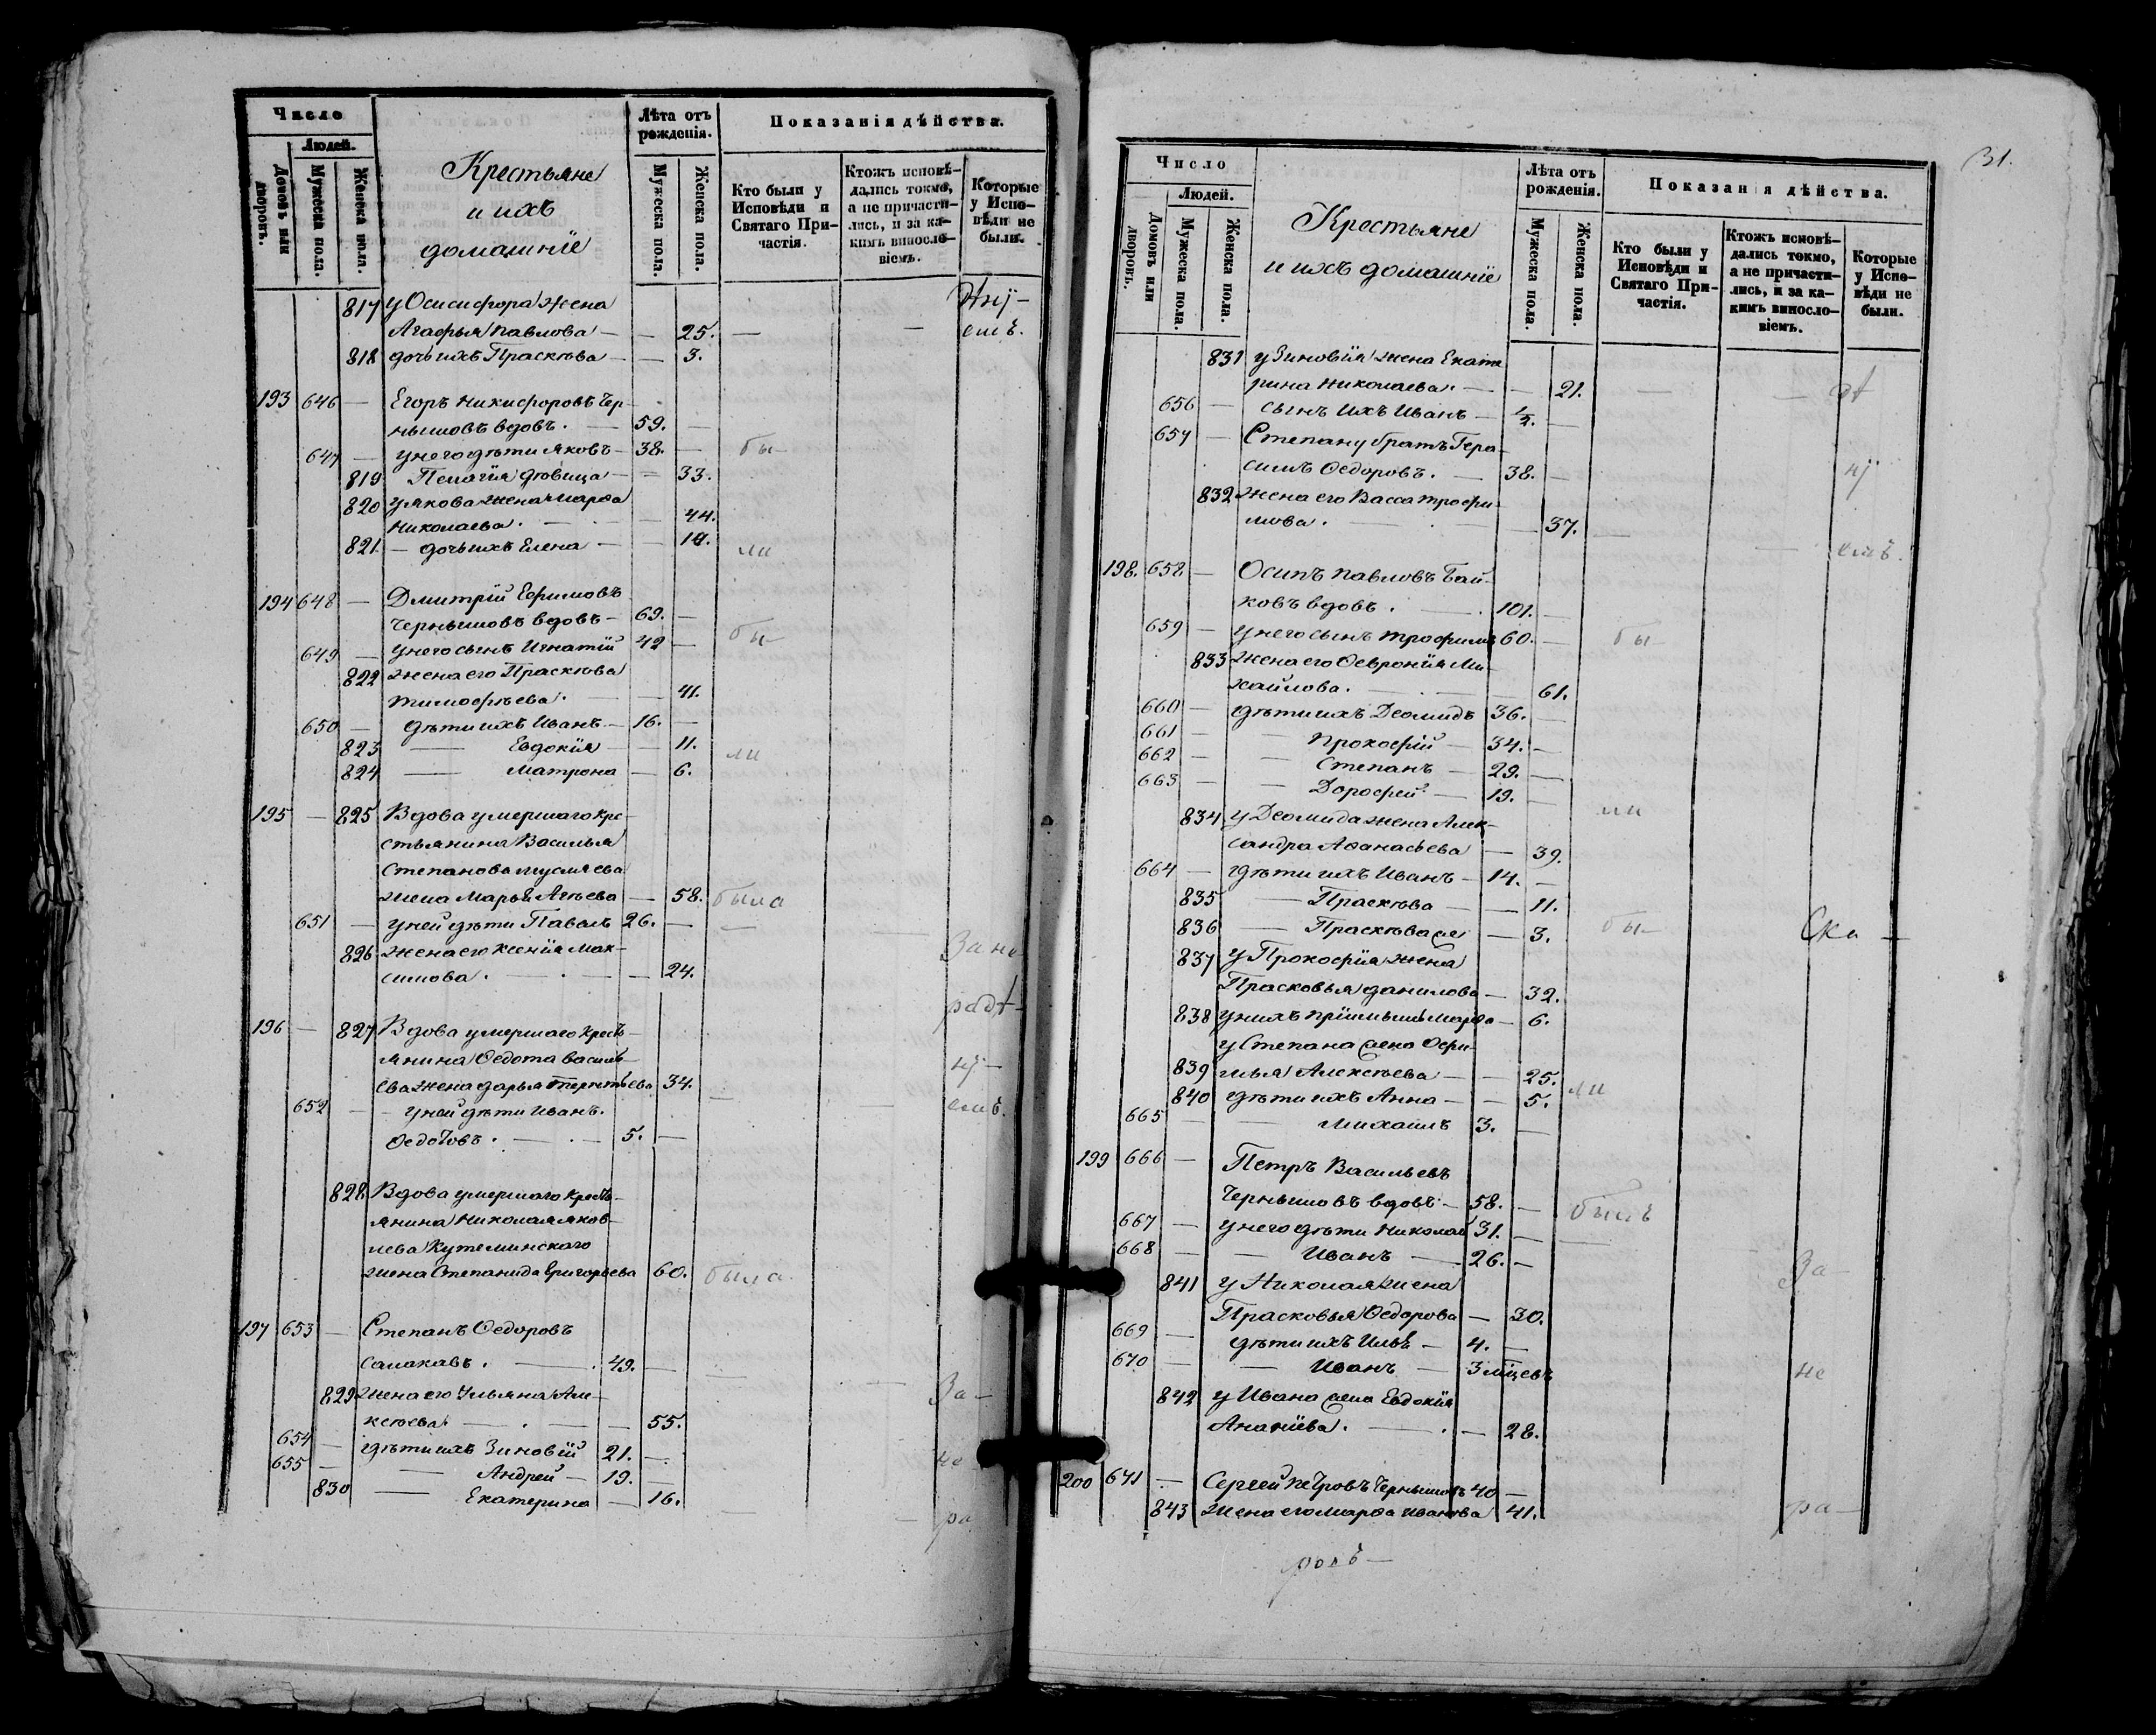 Число
Людей.
Домовъ или дворовъ.
Мужеска пола.
Женска пола.
Крестьяне
и ихъ
домашніе
Лѣта отъ рожденія.
Мужеска пола.
Женска пола.
Показанія дѣйства.
Кто были у Исповѣди и Святаго Причастія.
Ктожъ исповѣдались токмо, а не причастились, и за какимъ винословіемъ.
Которые у Исповѣди не были.
817 у Осисифора жена
Агафья Павлова — — 25. — —
818 дочь ихъ Прасковья — — 3.
193 646 — Егоръ Никифоровъ Чер-
нышовъ вдовъ. — 59. —
647 — у него дѣти Яковъ — 38. — бы-
819 Пелагія дѣвица — — 33.
820 у Якова жена Марѳа
Николаева. — — 44.
821. — дочь ихъ Елена — — 10. ли
194 648 — Дмитрій Ефимовъ
Чернышовъ вдовъ — 69. —
649 — у него сынъ Игнатій 42 — бы-
822 жена его Прасковья
Тимофѣева. — — 41.
650 — дѣти ихъ Иванъ — 16. —
823 — Евдокія — — 11. ли
824 — Матрона — 6.
195 — 825 Вдова умершаго кре-
стьянина Василья
Степанова
жена Марья — 58. была
651 — у ней дѣти Павелъ 26. — —
826 жена его Ксенія Мак- За не
симова. — — 24.
196 — 827 Вдова умершаго крестъ-
янина Ѳедота Василь-
ева жена Дарья Терентьева 34.
652 — у ней дѣти Иванъ.
Ѳедотовъ. — 5. —
828. Вдова умершаго крестъ-
янина Николая Яков-
лева Кутеминского
жена Степанида Григорьева 60. была.
197 653 — Степанъ Ѳедоровъ
49. —
829 жена его Ульяна Але- За-
ксѣева — — 55.
654 — дѣти ихъ Зиновій 21. —. не
655 — — Андрей — 19. —
830 — Екатерина — 16. ра
31.
Число
Людей.
Домовъ или дворовъ.
Мужеска пола.
Женска пола.
Крестьяне
и ихъ домашніе
Лѣта отъ рожденія.
Мужеска пола.
Женска пола.
Показанія дѣйства.
Кто были у Исповѣди и Святаго Причастія.
Ктожъ исповѣдались токмо, а не причастились, и за какимъ винословіемъ.
Которые у Исповѣди не были.
831 у Зиновія жена Екате
рина Николаева. — — 21. — —
656 — сынъ ихъ Иванъ — ½. —
657 — Степану братъ Гера-
симъ Ѳедоровъ. — 38. —
832 жена его Васса Трофи-
мова. — — 37.
198. 658. — Осипъ Павловъ Бай-
ковъ вдовъ. — 101. —
659 — у него сынъ Трофимъ 60. — бы
833 жена его Ѳевронія Ми-
хайлова. — — 61.
660 — дѣти ихъ Деомидъ 36. —
661 — — Прокофій — 34. —
662 — — Степанъ — 29. —
663 — — Дорофей — 19. —
834 у Деомида жена Алек- ли
сандра Аѳанасьева — 39.
664 — дѣти ихъ Иванъ — 14. —
835 — Прасковья — — 11.
836 — Прасковья — 3. бы-
837 у Прокофія жена
Прасковья Данилова — 32.
838 у нихъ Марѳа — 6.
у Степана жена Ѳефи-
839 мья Алексѣева — — 25.
840 дѣти ихъ Анна — — 5. ли
665 — — Михаилъ 3. —
199 666 — Петръ Васильевъ
Чернышовъ вдовъ — 58. — былъ
667 — у него дѣти Николай 31. — —
668 — — Иванъ — 26. —
841 у Николая жена За-
Прасковья Ѳедорова — 30.
669 — дѣти ихъ Илья — 4. —
670 — — Иванъ — 3 мѣцевъ не
842 у Ивана жена Евдокія
Ананіева. — — 28.
200 671 — Сергей Петровъ Чернышовъ 40 —
843 жена его Марѳа Иванова 41. ра-